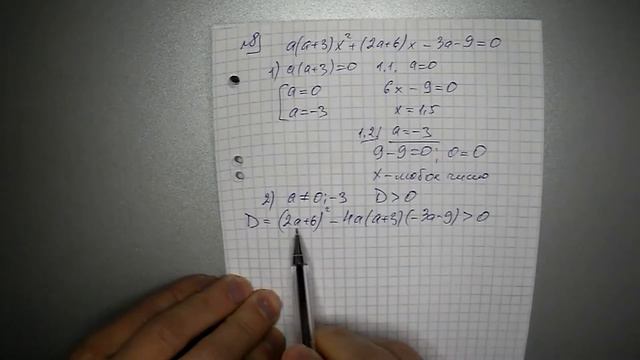 №8) a(a+3)x²+(2a+6)x-3a-9=0
1) a(a+3)=0 1.1. a=0
[a=0 6x-9=0
a=-3 x=1,5
1.2) a=-3
9-9=0; 0=0
x-любое число
2) a≠0;-3 D>0
D=(2a+6)²-4a(a+3)(-3a-9)>0